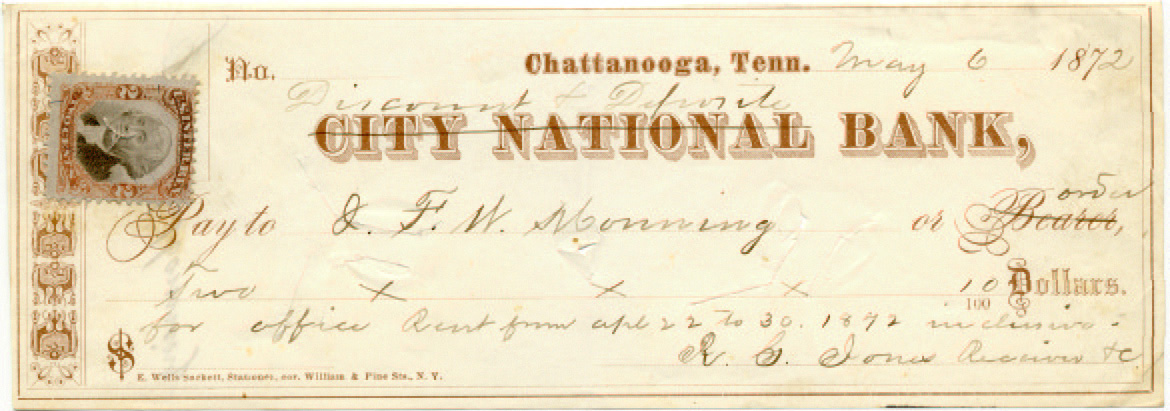 No. Chattanooga, Tenn. May 6 1872
Discount & Deposite
CITY NATIONAL BANK,
order
Pay to J. F. W. Monning or Bearer,
Two x x — x 10/100 Dollars.
for office Rent from apl 22 to 30. 1872 inclusive.
$ R. G. Jones Receiver &c
E. Wells Sackett, Stationer, cor. William & Pine Sts., N. Y.